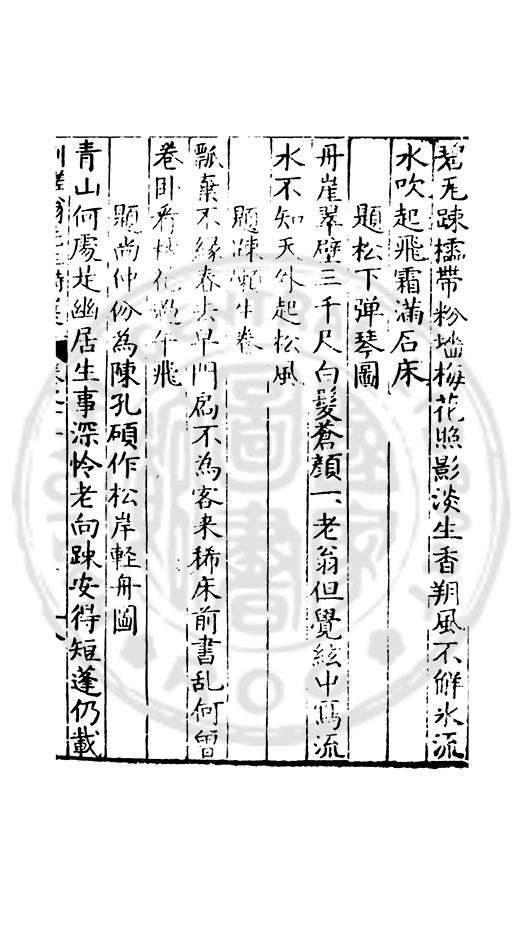 碧瓦踈櫺帶粉墻梅花照影淡生香朔風不解氷流
水吹起飛霜滿石床
題松下弹琴圖
丹崖翠壁三千尺白髮蒼顏一老翁但覺絃中寫流
水不知天外起松風
題陳懶牛卷
瓢棄不緣春去早門扄不為客来稀床前書乱何曾
卷卧看桃花過午飛
題尚仲份為陳孔碩作松岸軽舟圖
青山何處是幽居生事深怜老向踈安得短蓬仍載